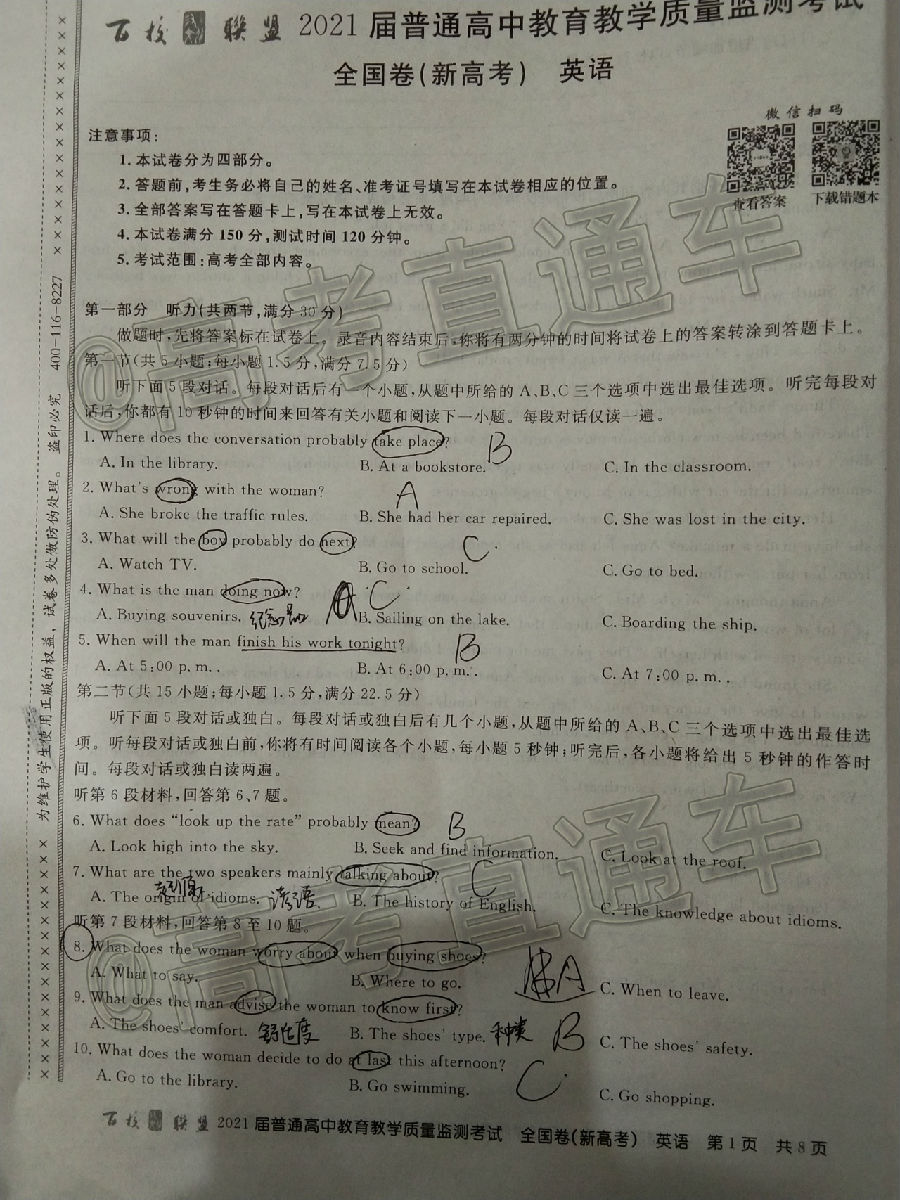 百校 联盟 2021届普通高中教育教学质量监测考试
全国卷(新高考) 英语
微信扫码
查看答案 下载错题本
注意事项:
1.本试卷分为四部分。
2.答题前,考生务必将自己的姓名、准考证号填写在本试卷相应的位置。
3.全部答案写在答题卡上,写在本试卷上无效。
4.本试卷满分150分,测试时间120分钟。
5.考试范围:高考全部内容。
第一部分 听力(共两节,满分30分)
做题时,先将答案标在试卷上。录音内容结束后,你将有两分钟的时间将试卷上的答案转涂到答题卡上。
第一节(共5小题;每小题1.5分,满分7.5分)
听下面5段对话。每段对话后有一个小题,从题中所给的A、B、C三个选项中选出最佳选项。听完每段对
话后,你都有10秒钟的时间来回答有关小题和阅读下一小题。每段对话仅读一遍。
1. Where does the conversation probably take place? B
A. In the library. B. At a bookstore. C. In the classroom.
2. What's wrong with the woman? A
A. She broke the traffic rules. B. She had her car repaired. C. She was lost in the city.
3. What will the boy probably do next? C
A. Watch TV. B. Go to school. C. Go to bed.
4. What is the man doing now? C
A. Buying souvenirs. 纪念品 B. Sailing on the lake. C. Boarding the ship.
5. When will the man finish his work tonight? B
A. At 5:00 p. m.. B. At 6:00 p. m.. C. At 7:00 p. m..
第二节(共15小题;每小题1.5分,满分22.5分)
听下面5段对话或独白。每段对话或独白后有几个小题,从题中所给的A、B、C三个选项中选出最佳选
项。听每段对话或独白前,你将有时间阅读各个小题,每小题5秒钟;听完后,各小题将给出5秒钟的作答时
间。每段对话或独白读两遍。
听第6段材料,回答第6、7题。
6. What does “look up the rate” probably mean? B
A. Look high into the sky. B. Seek and find information. C. Look at the roof.
7. What are the two speakers mainly talking about? C
A. The origin of idioms. 起源 谚语 B. The history of English. C. The knowledge about idioms.
听第7段材料,回答第8至10题。
8. What does the woman worry about when buying shoes? A
A. What to say. B. Where to go. C. When to leave.
9. What does the man advise the woman to know first? B
A. The shoes' comfort. 舒适度 B. The shoes' type. 种类 C. The shoes' safety.
10. What does the woman decide to do at last this afternoon? C
A. Go to the library. B. Go swimming. C. Go shopping.
百校 联盟 2021届普通高中教育教学质量监测考试 全国卷(新高考) 英语 第1页 共8页
为维护学生使用正版的权益,试卷多处做防伪处理。盗印必究 400-116-8227
@高考直通车
@高考直通车